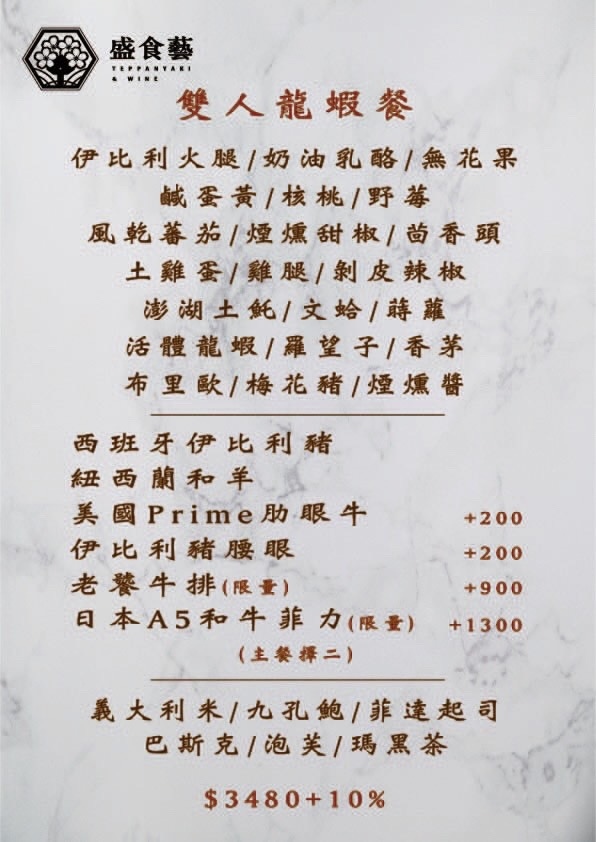 盛食藝
TEPPANYAKI
& WINE
雙人龍蝦餐
伊比利火腿/奶油乳酪/無花果
鹹蛋黃/核桃/野莓
風乾蕃茄/煙燻甜椒/茴香頭
土雞蛋/雞腿/剝皮辣椒
澎湖土魠/文蛤/蒔蘿
活體龍蝦/羅望子/香茅
布里歐/梅花豬/煙燻醬
西班牙伊比利豬
紐西蘭和羊
美國Prime肋眼牛 +200
伊比利豬腰眼 +200
老饕牛排(限量) +900
日本A5和牛菲力(限量) +1300
(主餐擇二)
義大利米/九孔鮑/菲達起司
巴斯克/泡芙/瑪黑茶
$3480+10%